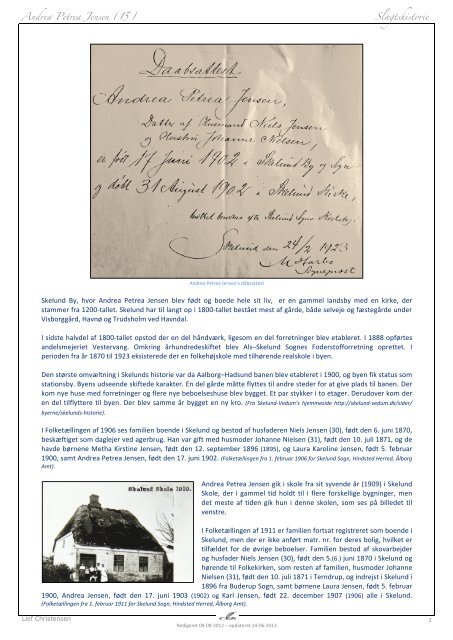 Andrea Petrea Jensen (15)
Slægtshistorie
Daabsattest
Andrea Petrea Jensen,
Datter af Husmand Niels Jensen
og Hustru Johanne Nielsen,
er født 17 Juni 1902 i Skelund By og Sogn
og døbt 31 August 1902 i Skelund Kirke,
Skelund Sogns Kirkebog
Skelund den 24/2 1923
Sognepræst
Andrea Petrea Jensen's dåbsattest
Skelund By, hvor Andrea Petrea Jensen blev født og boede hele sit liv, er en gammel landsby med en kirke, der
stammer fra 1200-tallet. Skelund har til langt op i 1800-tallet bestået mest af gårde, både selveje og fæstegårde under
Visborggård, Havnø og Trudsholm ved Havndal.
I sidste halvdel af 1800-tallet opstod der en del håndværk, ligesom en del forretninger blev etableret. I 1888 opførtes
andelsmejeriet Vestervang. Omkring århundredeskiftet blev Als–Skelund Sognes Foderstofforretning oprettet. I
perioden fra år 1870 til 1923 eksisterede der en folkehøjskole med tilhørende realskole i byen.
Den største omvæltning i Skelunds historie var da Aalborg–Hadsund banen blev etableret i 1900, og byen fik status som
stationsby. Byens udseende skiftede karakter. En del gårde måtte flyttes til andre steder for at give plads til banen. Der
kom nye huse med forretninger og flere nye beboelseshuse blev bygget. Et par stykker i to etager. Derudover kom der
en del tilflyttere til byen. Der blev samme år bygget en ny kro. (Fra Skelund-Vedum's hjemmeside http://skelund-vedum.dk/sider/
byerne/skelunds-historie).
I Folketællingen af 1906 ses familien boende i Skelund og bestod af husfaderen Niels Jensen (30), født den 6. juni 1870,
beskæftiget som daglejer ved agerbrug. Han var gift med husmoder Johanne Nielsen (31), født den 10. juli 1871, og de
havde børnene Metha Kirstine Jensen, født den 12. september 1896 (1895), og Laura Karoline Jensen, født 5. februar
1900, samt Andrea Petrea Jensen, født den 17. juni 1902. (Folketællingen fra 1. februar 1906 for Skelund Sogn, Hindsted Herred, Ålborg
Amt).
Skelund Skole 1910.
Andrea Petrea Jensen gik i skole fra sit syvende år (1909) i Skelund
Skole, der i gammel tid holdt til i flere forskellige bygninger, men
det meste af tiden gik hun i denne skolen, som ses på billedet til
venstre.
I Folketællingen af 1911 er familien fortsat registreret som boende i
Skelund, men der er ikke anført matr. nr. for deres bolig, hvilket er
tilfældet for de øvrige beboelser. Familien bestod af skovarbejder
og husfader Niels Jensen (30), født den 5.(6.) juni 1870 i Skelund og
hørende til Folkekirken, som resten af familien, husmoder Johanne
Nielsen (31), født den 10. juli 1871 i Terndrup, og indrejst i Skelund i
1896 fra Buderup Sogn, samt børnene Laura Jensen, født 5. februar
1900, Andrea Jensen, født den 17. juni 1903 (1902) og Karl Jensen, født 22. december 1907 (1906) alle i Skelund.
(Folketællingen fra 1. februar 1911 for Skelund Sogn, Hindsted Herred, Ålborg Amt).
Leif Christensen
2
Redigeret 09-09-2012 – opdateret 24-06-2013